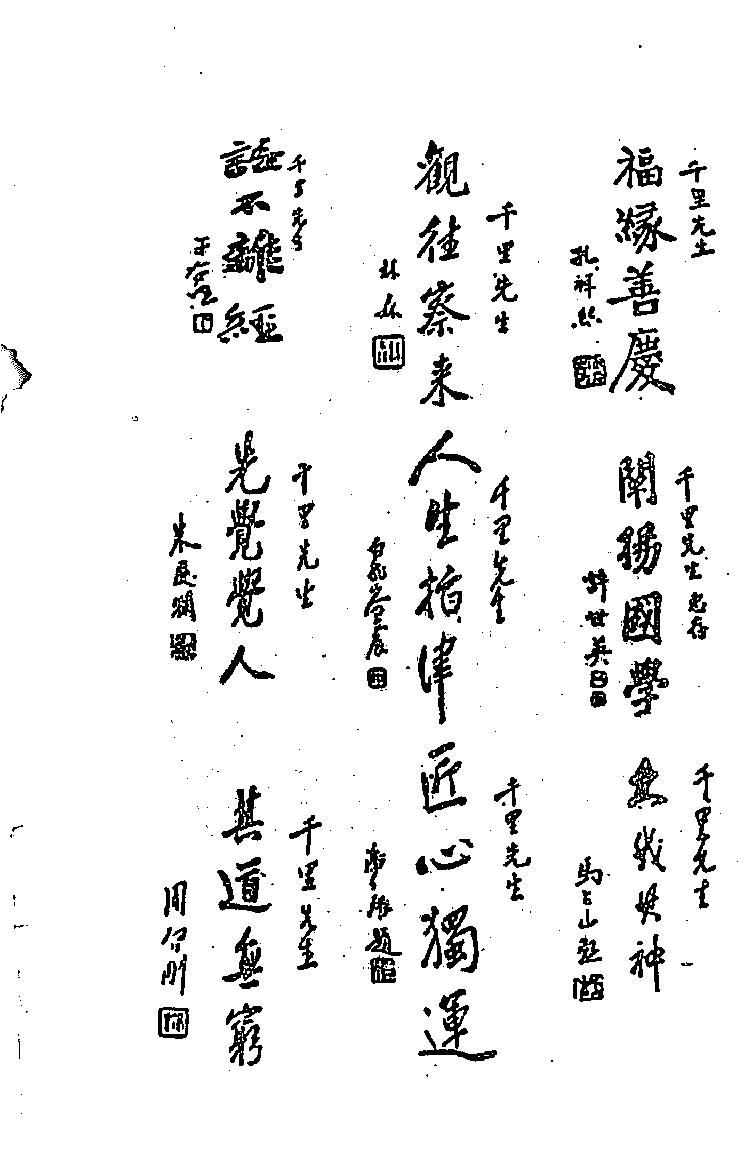 千里先生
福緣善慶
孔祥熙
千里先生惠存
闡揚國學
許世英
千里先生
神
馬占山題
千里先生
觀往察来
林森
千里先生
人生指津
千里先生
匠心獨運
題
千里先生
不離經
于右任
千里先生
先覺覺人
朱慶瀾
千里先生
其道無窮
周剛